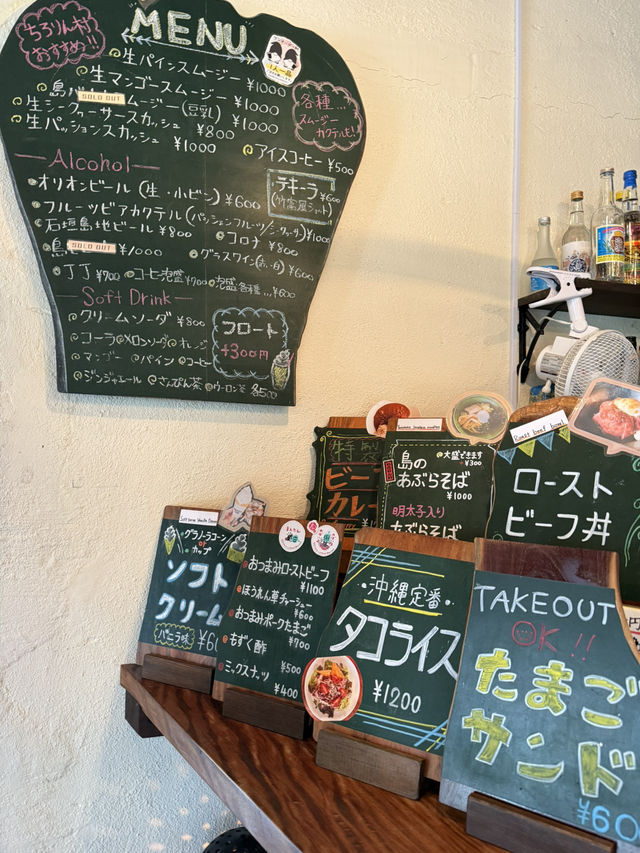 ちろりん村
おすすめ!!
MENU
1人一品
生パインスムージー ¥1000
生マンゴースムージー ¥1000
島 SOLD OUT ムージー(豆乳) ¥1000
生シークヮーサースカッシュ ¥800
生パッションスカッシュ ¥1000
各種...
スムージー
カクテルも!
アイスコーヒー ¥500
Alcohol
オリオンビール(生・小ビン) ¥600
テキーラ ¥600
フルーツビアカクテル(パッションフルーツ/シークヮーサー) ¥1000
石垣島地ビール ¥800
コロナ ¥800
島 SOLD OUT ¥1000
グラスワイン(赤・白) ¥600
JJ ¥700
コーヒー泡盛 ¥700
泡盛各種... ¥600
Soft Drink
クリームソーダ ¥800
フロート
+300円
コーラ メロンソーダ オレンジ
マンゴー パイン コーヒー
ジンジャエール さんぴん茶 ウーロン茶 各500
特
ビー
カレー
大盛できます
+¥300
島の
あぶらそば
¥1000
明太子入り
あぶらそば
Roast beef bowl
ロースト
ビーフ丼
グラノーラコーン
or
カップ
ソフト
クリーム
バニラ味 ¥6
おつまみローストビーフ
¥1100
ほうれん草チャーシュー
¥600
おつまみポークたまご
¥700
もずく酢 ¥500
ミックスナッツ
¥400
沖縄定番
タコライス
¥1200
TAKEOUT
OK!!
たまご
サンド
¥60